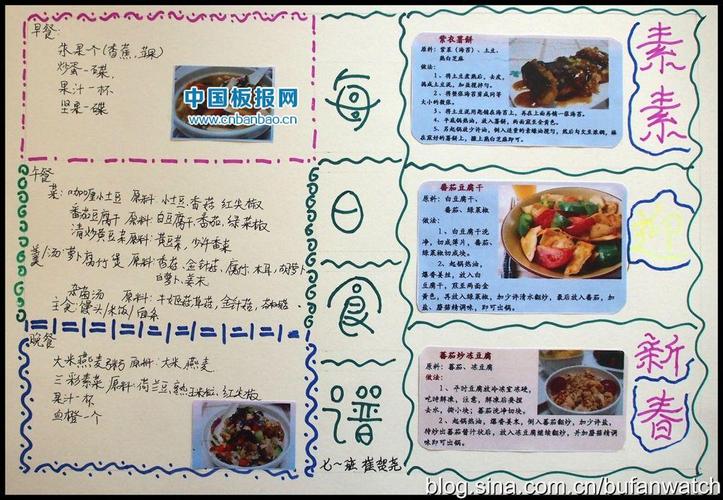 早餐:
朱果个(香蕉,苹果)
炒蛋一碟,
果汁一杯
坚果一碟
中国板报网
www.cnbanbao.cn
午餐
菜: 咖喱小土豆 原料: 小土豆.香菇.红尖椒
番茄豆腐干 原料:白豆腐干,番茄,绿菜椒
清炒黄豆菜 原料:黄豆菜,少许香菜
羹/汤:萝卜腐竹煲 原料:香菇、金针菇、腐竹、木耳、胡萝卜
白萝卜、姜末
杂菌汤 原料:
主食:馒头/米饭/面条
晚餐
大米燕麦粥 原料:大米.燕麦
三彩素菜 原料:荷兰豆,熟玉米粒、红尖椒
果汁一杯
血橙一个
每
日
食
谱
七一班 崔贺尧
紫衣薯饼
原料:紫菜(海苔)、土豆、
熟白芝麻
做法:
1、将土豆煮熟后,去皮,
捣成土豆泥,加盐搅拌匀。
2、将整张海苔剪成同等
大小的数张。
3、将土豆泥用匙铺在海苔上,再在上面再铺一张海苔。
4、平底锅热油,放入薯饼,两面煎至金黄色。
5、另起锅放少许油,倒入适量的素蚝油搅匀,然后勾欠至浓稠,淋
在煎好的薯饼上,撒上熟白芝麻即可。
番茄豆腐干
原料:白豆腐干、
番茄、绿菜椒
做法:
1、白豆腐干洗
净,切成薄片,番茄、
绿菜椒切成块。
2、起锅热油,
爆香姜丝,放入白
豆腐干,煎至两面金
黄色,再放入绿菜椒,加少许清水翻炒,最后放入番茄,加
盐、蘑菇精调味,即可出锅。
番茄炒冻豆腐
原料:番茄、冻豆腐
做法:
1、平时豆腐放冷冻室冰硬,
吃时解冻,注意,解冻后要捏
去水,撕小块;番茄洗净切块。
2、起锅热油,爆香姜末,倒入番茄翻炒,加少许盐,
待炒出番茄酱汁状后,放入冻豆腐继续翻炒,并加蘑菇精调
味即可出锅。
素
素
迎
新
春
blog.sina.com.cn/bufanwatch